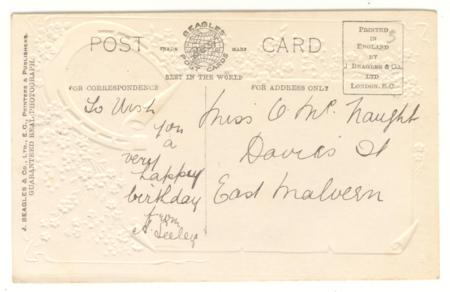 POST CARD
BEAGLES
POST CARDS
TRADE MARK
BEST IN THE WORLD
PRINTED
IN
ENGLAND
BY
J. BEAGLES & Co.
LTD
LONDON. E.C.
3
FOR CORRESPONDENCE
FOR ADDRESS ONLY
To Wish
you
a
very
happy
birthday
from
A. Seeley
Miss O McNaught
Davies St
East Malvern
J. BEAGLES & Co., LTD., E.C., PRINTERS & PUBLISHERS.
GUARANTEED REAL PHOTOGRAPH.